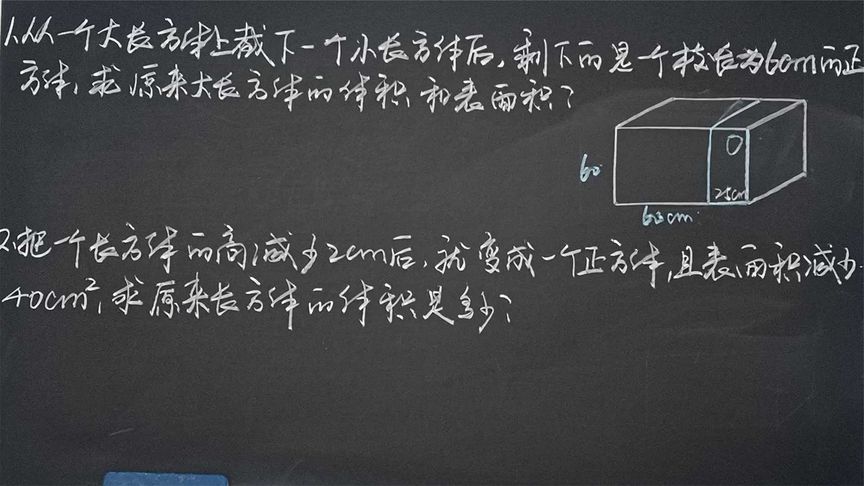 1.从一个大长方体上截下一个小长方体后,剩下的是一个棱长为60m的正
方体,求原来大长方体的体积和表面积?
60
25cm
60cm
2.把一个长方体的高减少2cm后,就变成一个正方体,且表面积减少
40cm²,求原来长方体的体积是多少?